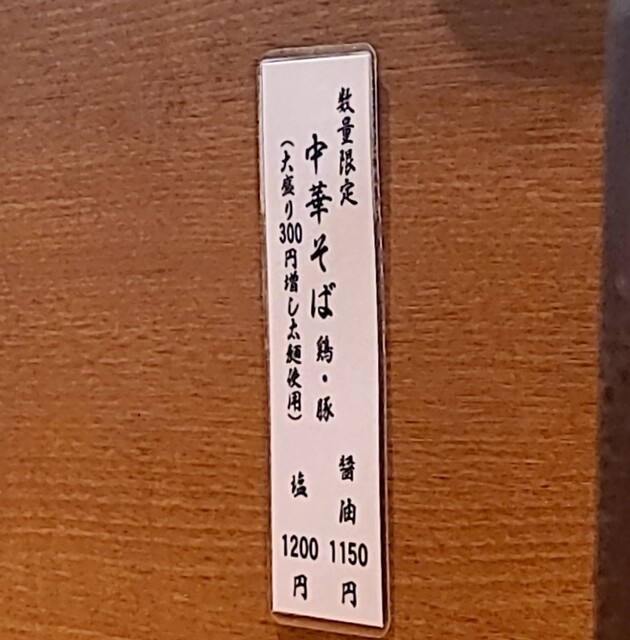 数量限定
中華そば 鶏・豚
(大盛り300円増し太麺使用)
醤油 1150円
塩 1200円